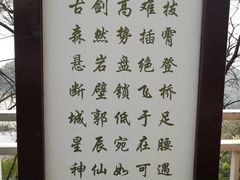 古剑高难拔
森然势插霄
悬岩盘绝登
断壁锁飞桥
城郭低于足
星辰宛在腰
神仙如可遇